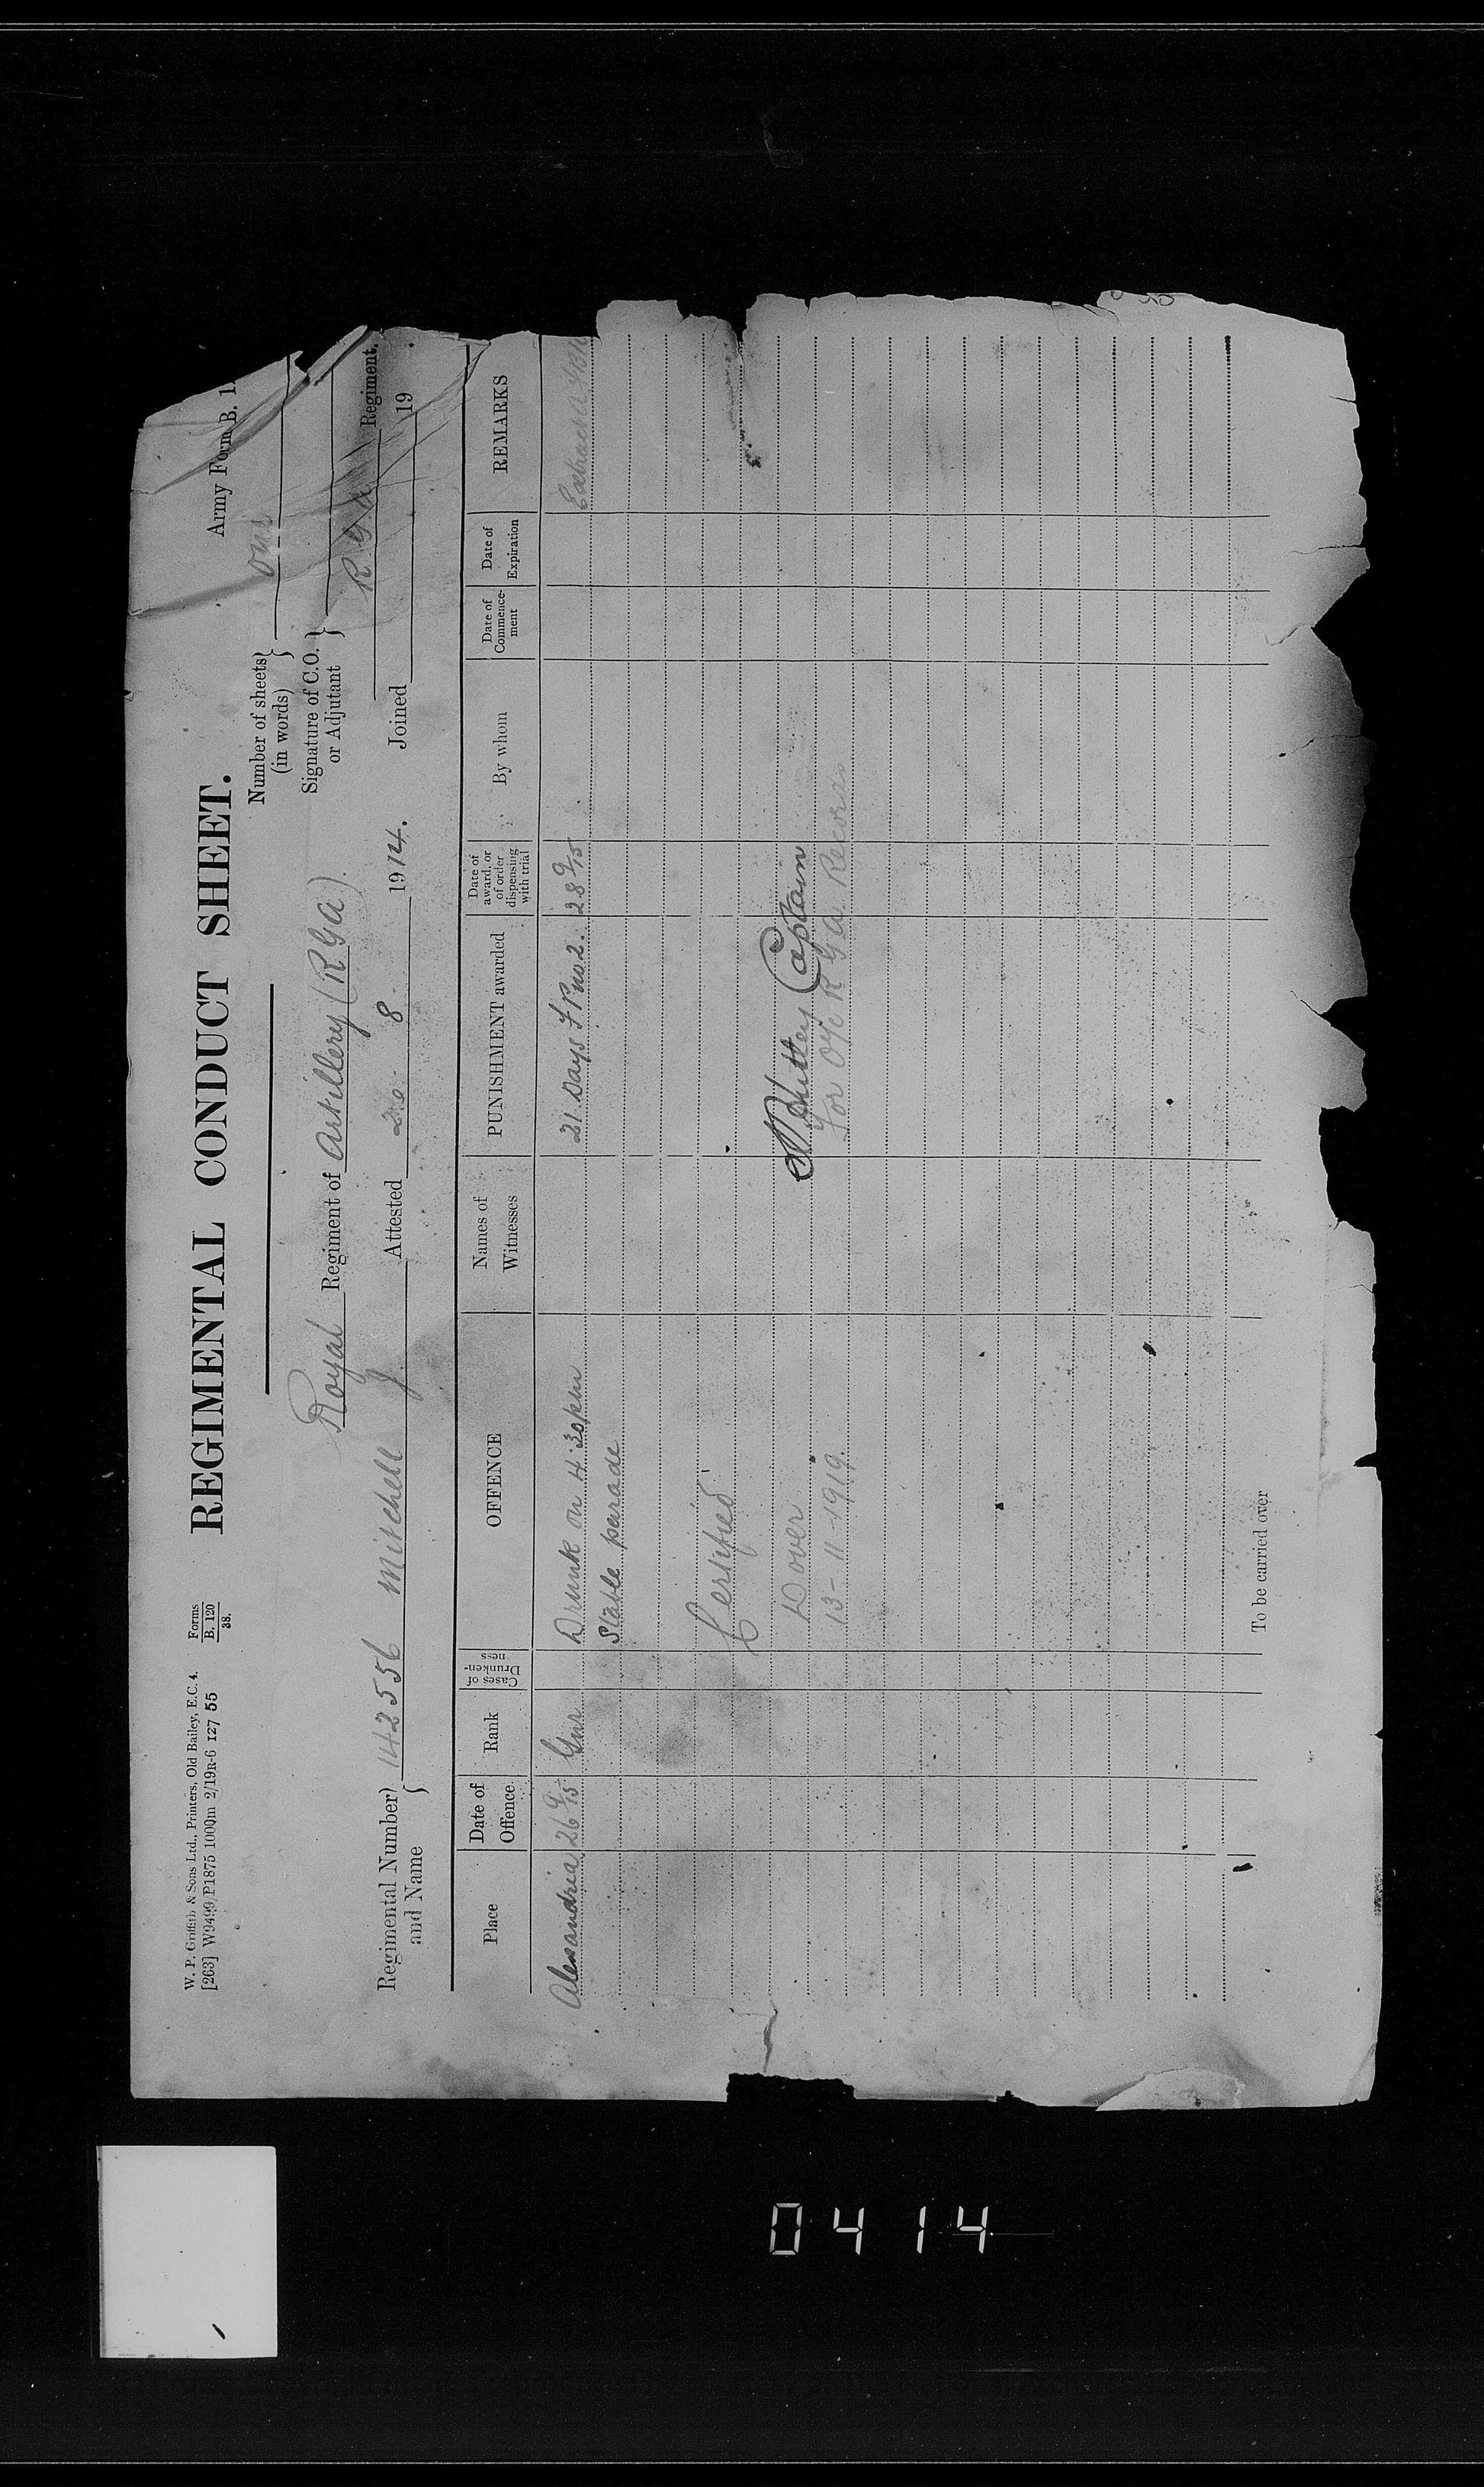 W. P. Griffith & Sons Ltd., Printers, Old Bailey, E.C.4.
[263] W9499/P1875 1000m 2/19R-6 127 55
Forms
B. 120
38.
REGIMENTAL CONDUCT SHEET.
Army Form B. 1
Number of sheets
(in words)
one
Signature of C.O.
or Adjutant
Royal Regiment of Artillery (RGA).
R G A Regiment.
Regimental Number
and Name
142556 Mitchell J. Attested 26 8 1914. Joined 19 .
Place
Date of
Offence
Rank
Cases of
Drunken-
ness
OFFENCE
Names of
Witnesses
PUNISHMENT awarded
Date of
award, or
of order
dispensing
with trial
By whom
Date of
Commence-
ment
Date of
Expiration
REMARKS
Alexandria 26 9/15 Gnr Drunk on 4.30pm 21 Days F P no 2. 28 9/15
Stable parade
Certified
Dover
13-11-1919.
Captain
For O/c R G A Records
To be carried over
0414